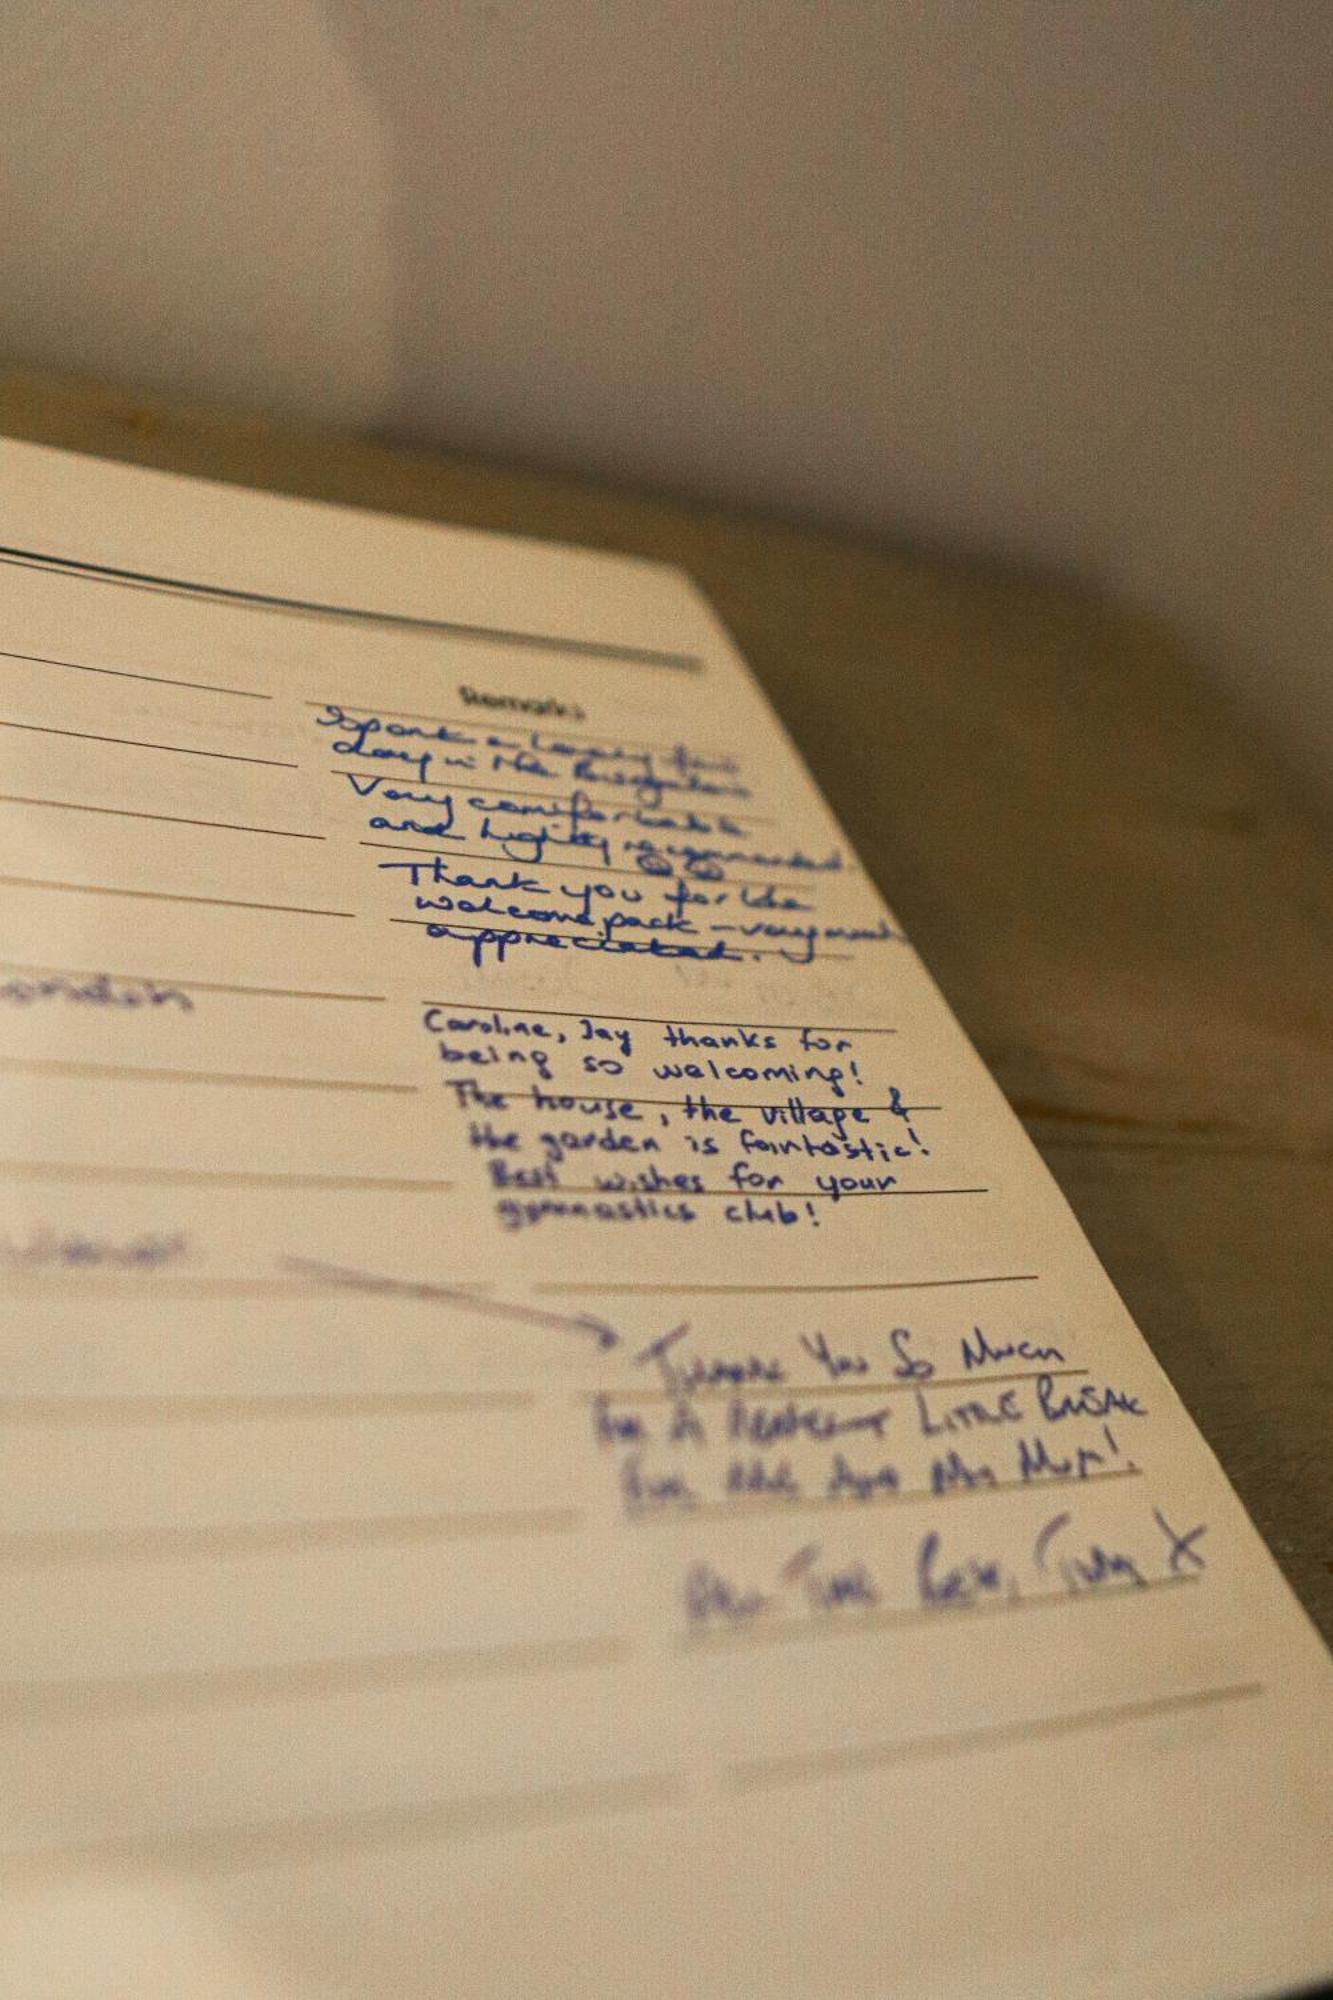 Remarks
Spent a lovely few
days in the
Very comfortable
and highly recommended.
Thank you for the
welcome pack – very much
appreciated.
Caroline, Jay thanks for
being so welcoming!
The house, the village &
the garden is faintastic!
Best wishes for your
gymnastics club!
Thank You So Much
For A Perfect Little Break
For Me And My Mum!
All The Best,
X